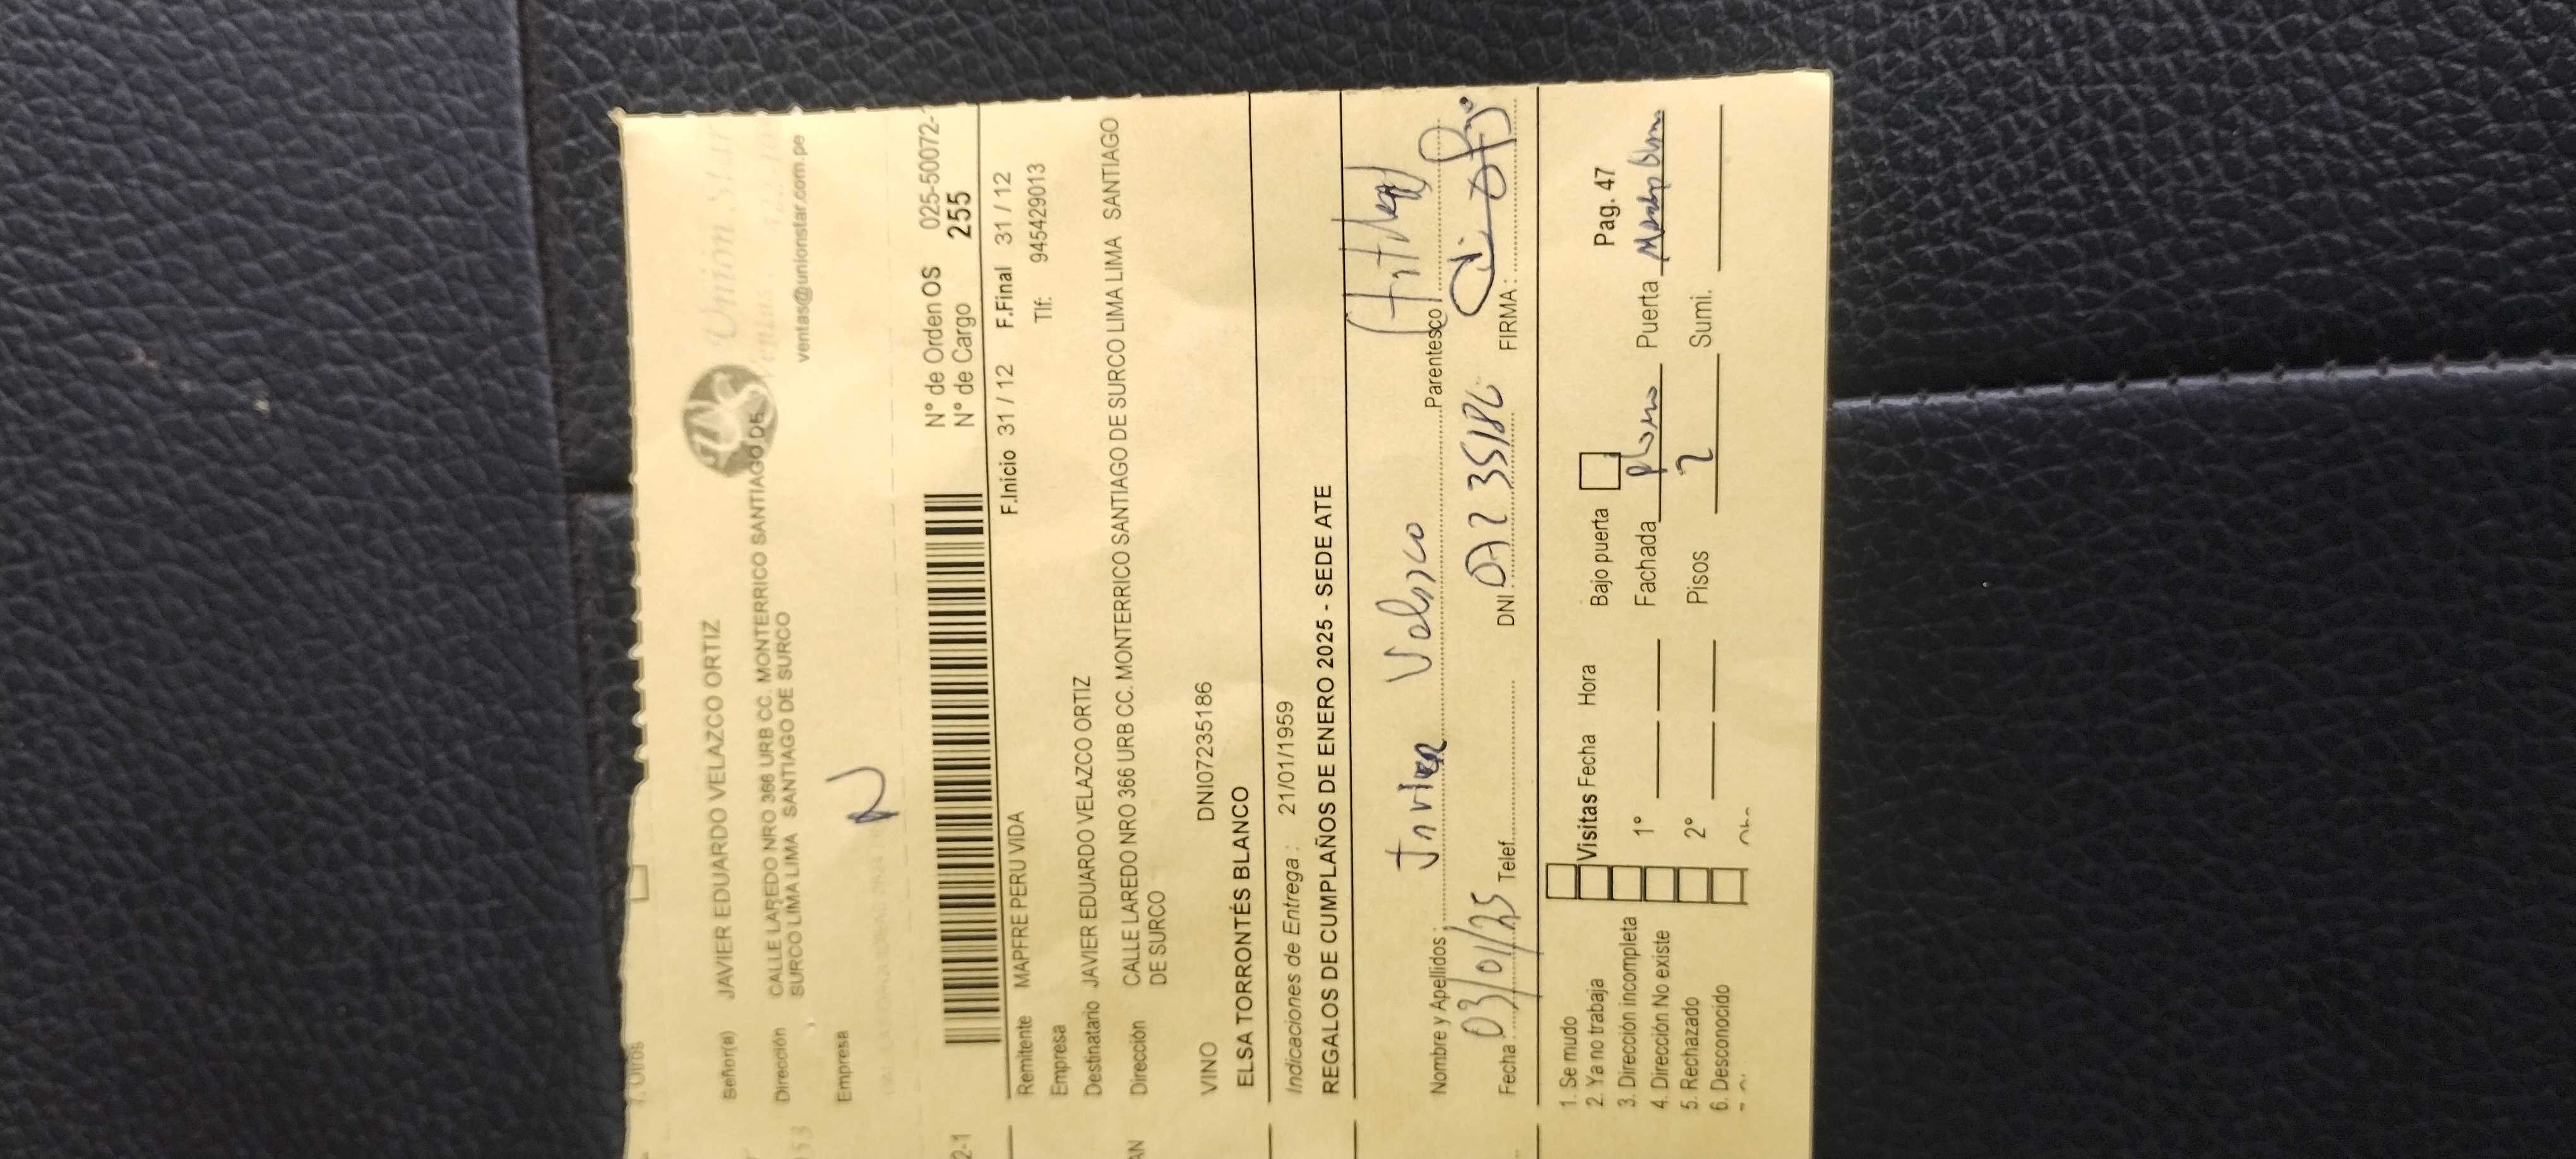 7. Otros
Señor(a) JAVIER EDUARDO VELAZCO ORTIZ
Union Star
Dirección CALLE LAREDO NRO 366 URB CC. MONTERRICO SANTIAGO DE
SURCO LIMA LIMA SANTIAGO DE SURCO
ventas@unionstar.com.pe
Empresa
N
2-1
N° de Orden OS 025-50072-
N° de Cargo 255
Remitente MAPFRE PERU VIDA F.Inicio 31 / 12 F.Final 31 / 12
Empresa Tlf: 945429013
Destinatario JAVIER EDUARDO VELAZCO ORTIZ
Dirección CALLE LAREDO NRO 366 URB CC. MONTERRICO SANTIAGO DE SURCO LIMA LIMA SANTIAGO
DE SURCO
VINO DNI07235186
ELSA TORRONTÉS BLANCO
Indicaciones de Entrega : 21/01/1959
REGALOS DE CUMPLAÑOS DE ENERO 2025 - SEDE ATE
Nombre y Apellidos : Javier Velazco Parentesco Titular
Fecha : 03/01/25 Telef. DNI 07235186 FIRMA :
1. Se mudo
2. Ya no trabaja Visitas Fecha Hora Bajo puerta Pag. 47
3. Dirección incompleta
4. Dirección No existe 1° Fachada Plomo Puerta
5. Rechazado 2° Pisos 2 Sumi.
6. Desconocido